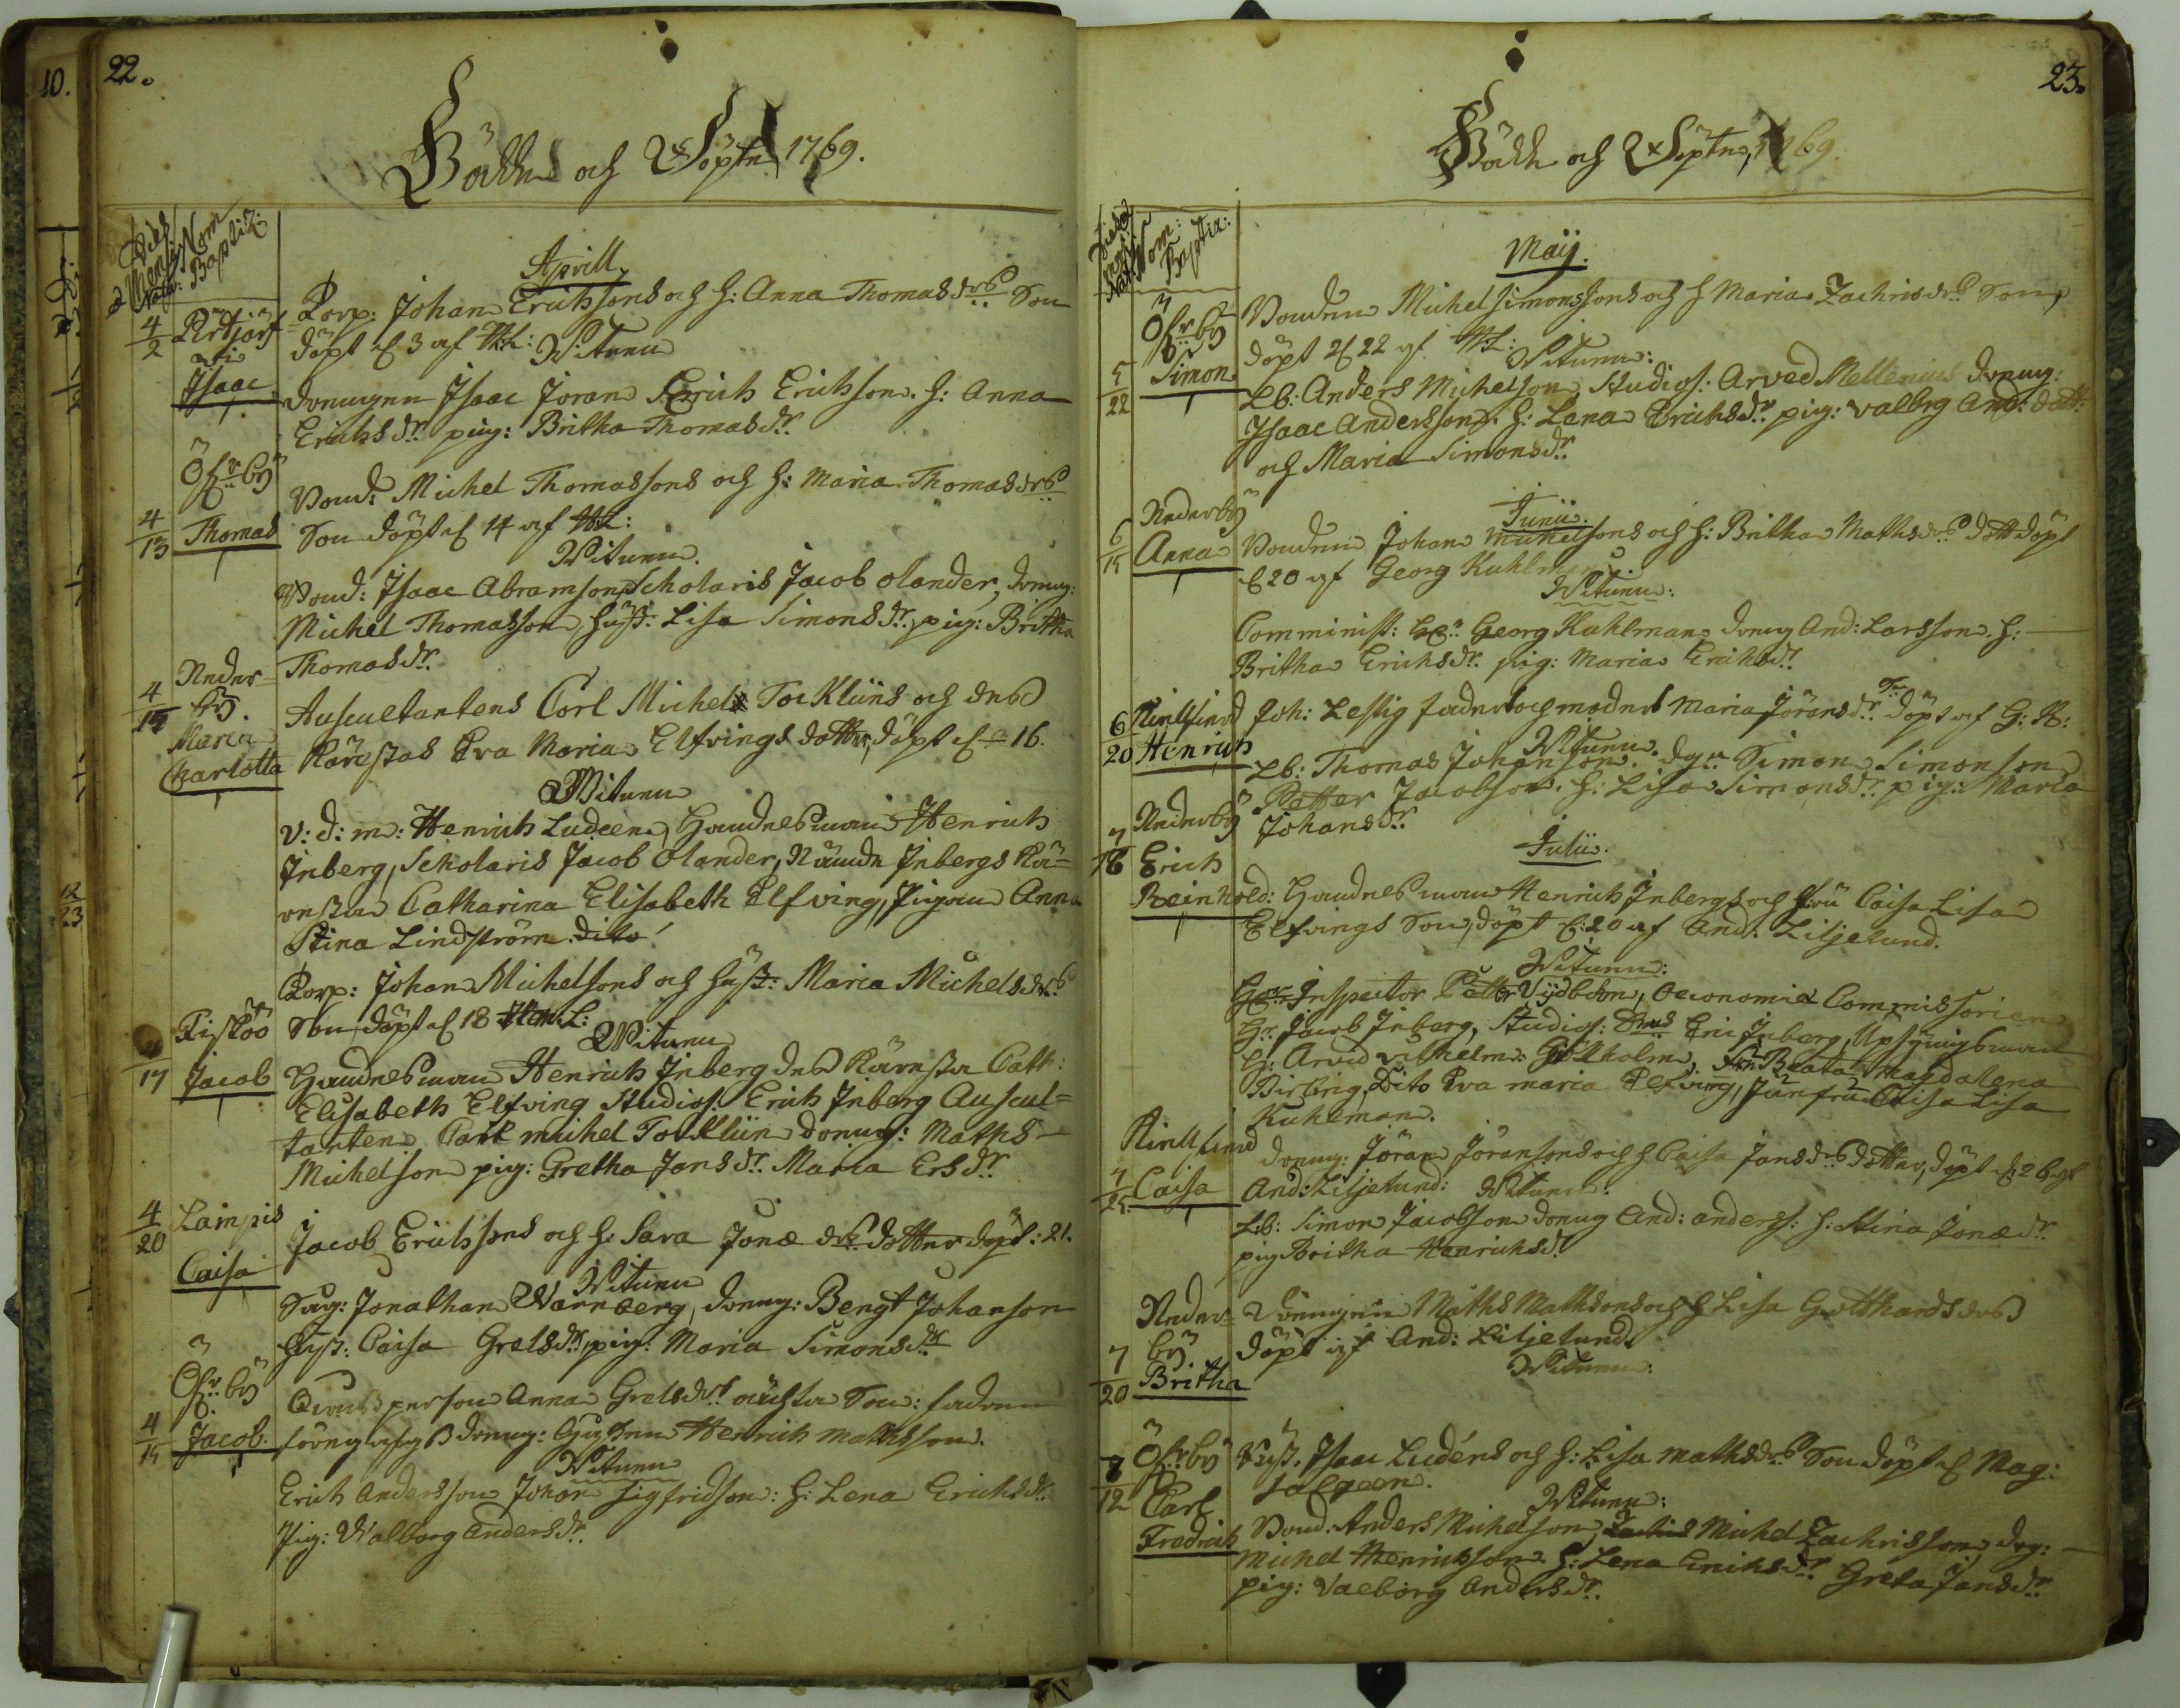 10.
22.
Födde och Döpte 1769.
Dies
Mensis Nom
Nativ: Baptiz:
Aprill
4/2
Isaac
Corp: Johan Erichssons och h: Anna Thomasdrs Son
döpt d 3 af
Witnen
Isaac Jöran Erich Erichsson. h: Anna
Erichsdr. pig: Britha Thomasdr.
Öfrby
4/13 Thomas
Bond: Michel Thomassons och h: Maria Thomasdrs
Son döpt d 14 af
Witnen.
Bond: Isaac Abramson, Scholaris Jacob Olander, dreng:
Michel Thomasson, hust: Lisa Simonsdr. pig: Britha
Thomasdr.
Neder-
by.
4/15
Maria
Charlotta
Auscultantens Carl Michel Tocklins och dess
Kärestas Eva Maria Elfvings dotter, döpt d 16.
Witnen
V: d: m: Henrich Ludeen, Handelsman Henrich
Inberg, Scholaris Jacob Olander, Inbergs Kä-
resta Catharina Elisabeth Elfving, Pigan Anna
Stina Lindström dito
Fiskö
4/17 Jacob
Corp: Johan Michelsons och hust: Maria Michelsdrs
Son döpt d 18
Witnen
Handelsman Henrich Inberg dess Käresta Cath:
Elisabeth Elfving Studios. Erich Inberg Auscul-
tanten Carl Michel Tocklin dreng: Maths
Michelson pig: Gretha Jansdr. Maria Ersdr.
4/20 Lampis
Caisa
Jacob Erichssons och h: Sara Jonæ drs dotter döpt: 21.
Witnen
Jonathan Warnberg, dreng: Bengt Johanson
hust: Caisa Gretsdr, pig: Maria Simonsdr
Öfrby
4/15 Jacob.
Qvinsperson Anna Gretsdrs oächta Son: fadren
dreng: Henrich Mathsson.
Witnen
Erich Andersson Johan Sigfridson: h: Lena Erichsdr.
Pig: Walborg Andersdr.
12/23
23.
Födde och Döpte, 1769.
Nom:
Baptiz:
Maij.
Öfrby
5/22 Simon
Bonden Michel Simonssons och h Maria Zachrisdrs Son,
döpt d 22 af
Witnen:
Lb: Anders Michelson, Studios. Arved Mellenius dreng:
Isaac Andersson. h: Lena Erichsdr. pig: Valbrg And: dott:
och Maria Simonsdr.
Nederby
Junii.
6/15 Anna
Bonden Johan Michelsons och h: Britha Mathsdrs dott döpt
d 20 af Georg Kuhlman.
Witnen:
Comminist: Georg Kuhlman dreng And: Larsson. h:
Britha Erichsdr. pig: Maria Erichsdr.
6/20 Henrich
Joh: Leskig fader och moder Maria Jöransdr. döpt af G: K:
Witnen.
Lb: Thomas Johanson. dgn: Simon Simonson
Petter Jacobson. h: Lisa Simonsdr. pig: Maria
Johansdr.
Nederby
Julii.
7/18 Erich
Reinhold:
Handelsman Henrich Inbergs och fru Caisa Lisa
Elfvings Son, döpt d: 20 af And: Liljelund.
Witnen:
Inspector Petter, Oeconomie Commissarien
Hr. Jacob Inberg, Studios: Eric Inberg, Upsyningsman
H: Arvid Vilhelm, Fru Beata Magdalena
Dito Eva Maria Elfving, Junfru Caisa Lisa
Kuhlman.
7/25 Caisa
dreng: Jöran Jöransons och h Caisa Jansdrs dotter, döpt d: 26 af
And: Liljelund: Witnen:
Lb: Simon Jacobson dreng And: anders: h: Stina Jonædr.
pig Britha Henrichsdr
Neder-
by
7/20 Britha
Maths Mathsons och h Lisa Gotthardsdrs
döpt af And: Liljelund
Witnen:
Öfrby
8/12 Carl
Fredrich
Isaac Ludens och h: Lisa Mathsdrs Son döpt d Mag:
Witnen:
Bond: Anders Michelson, Michel Zachrisson, drg:
Michel Henrichson h: Lena Erichsdr. Greta Jansdr.
pig: Valborg Andersdr.